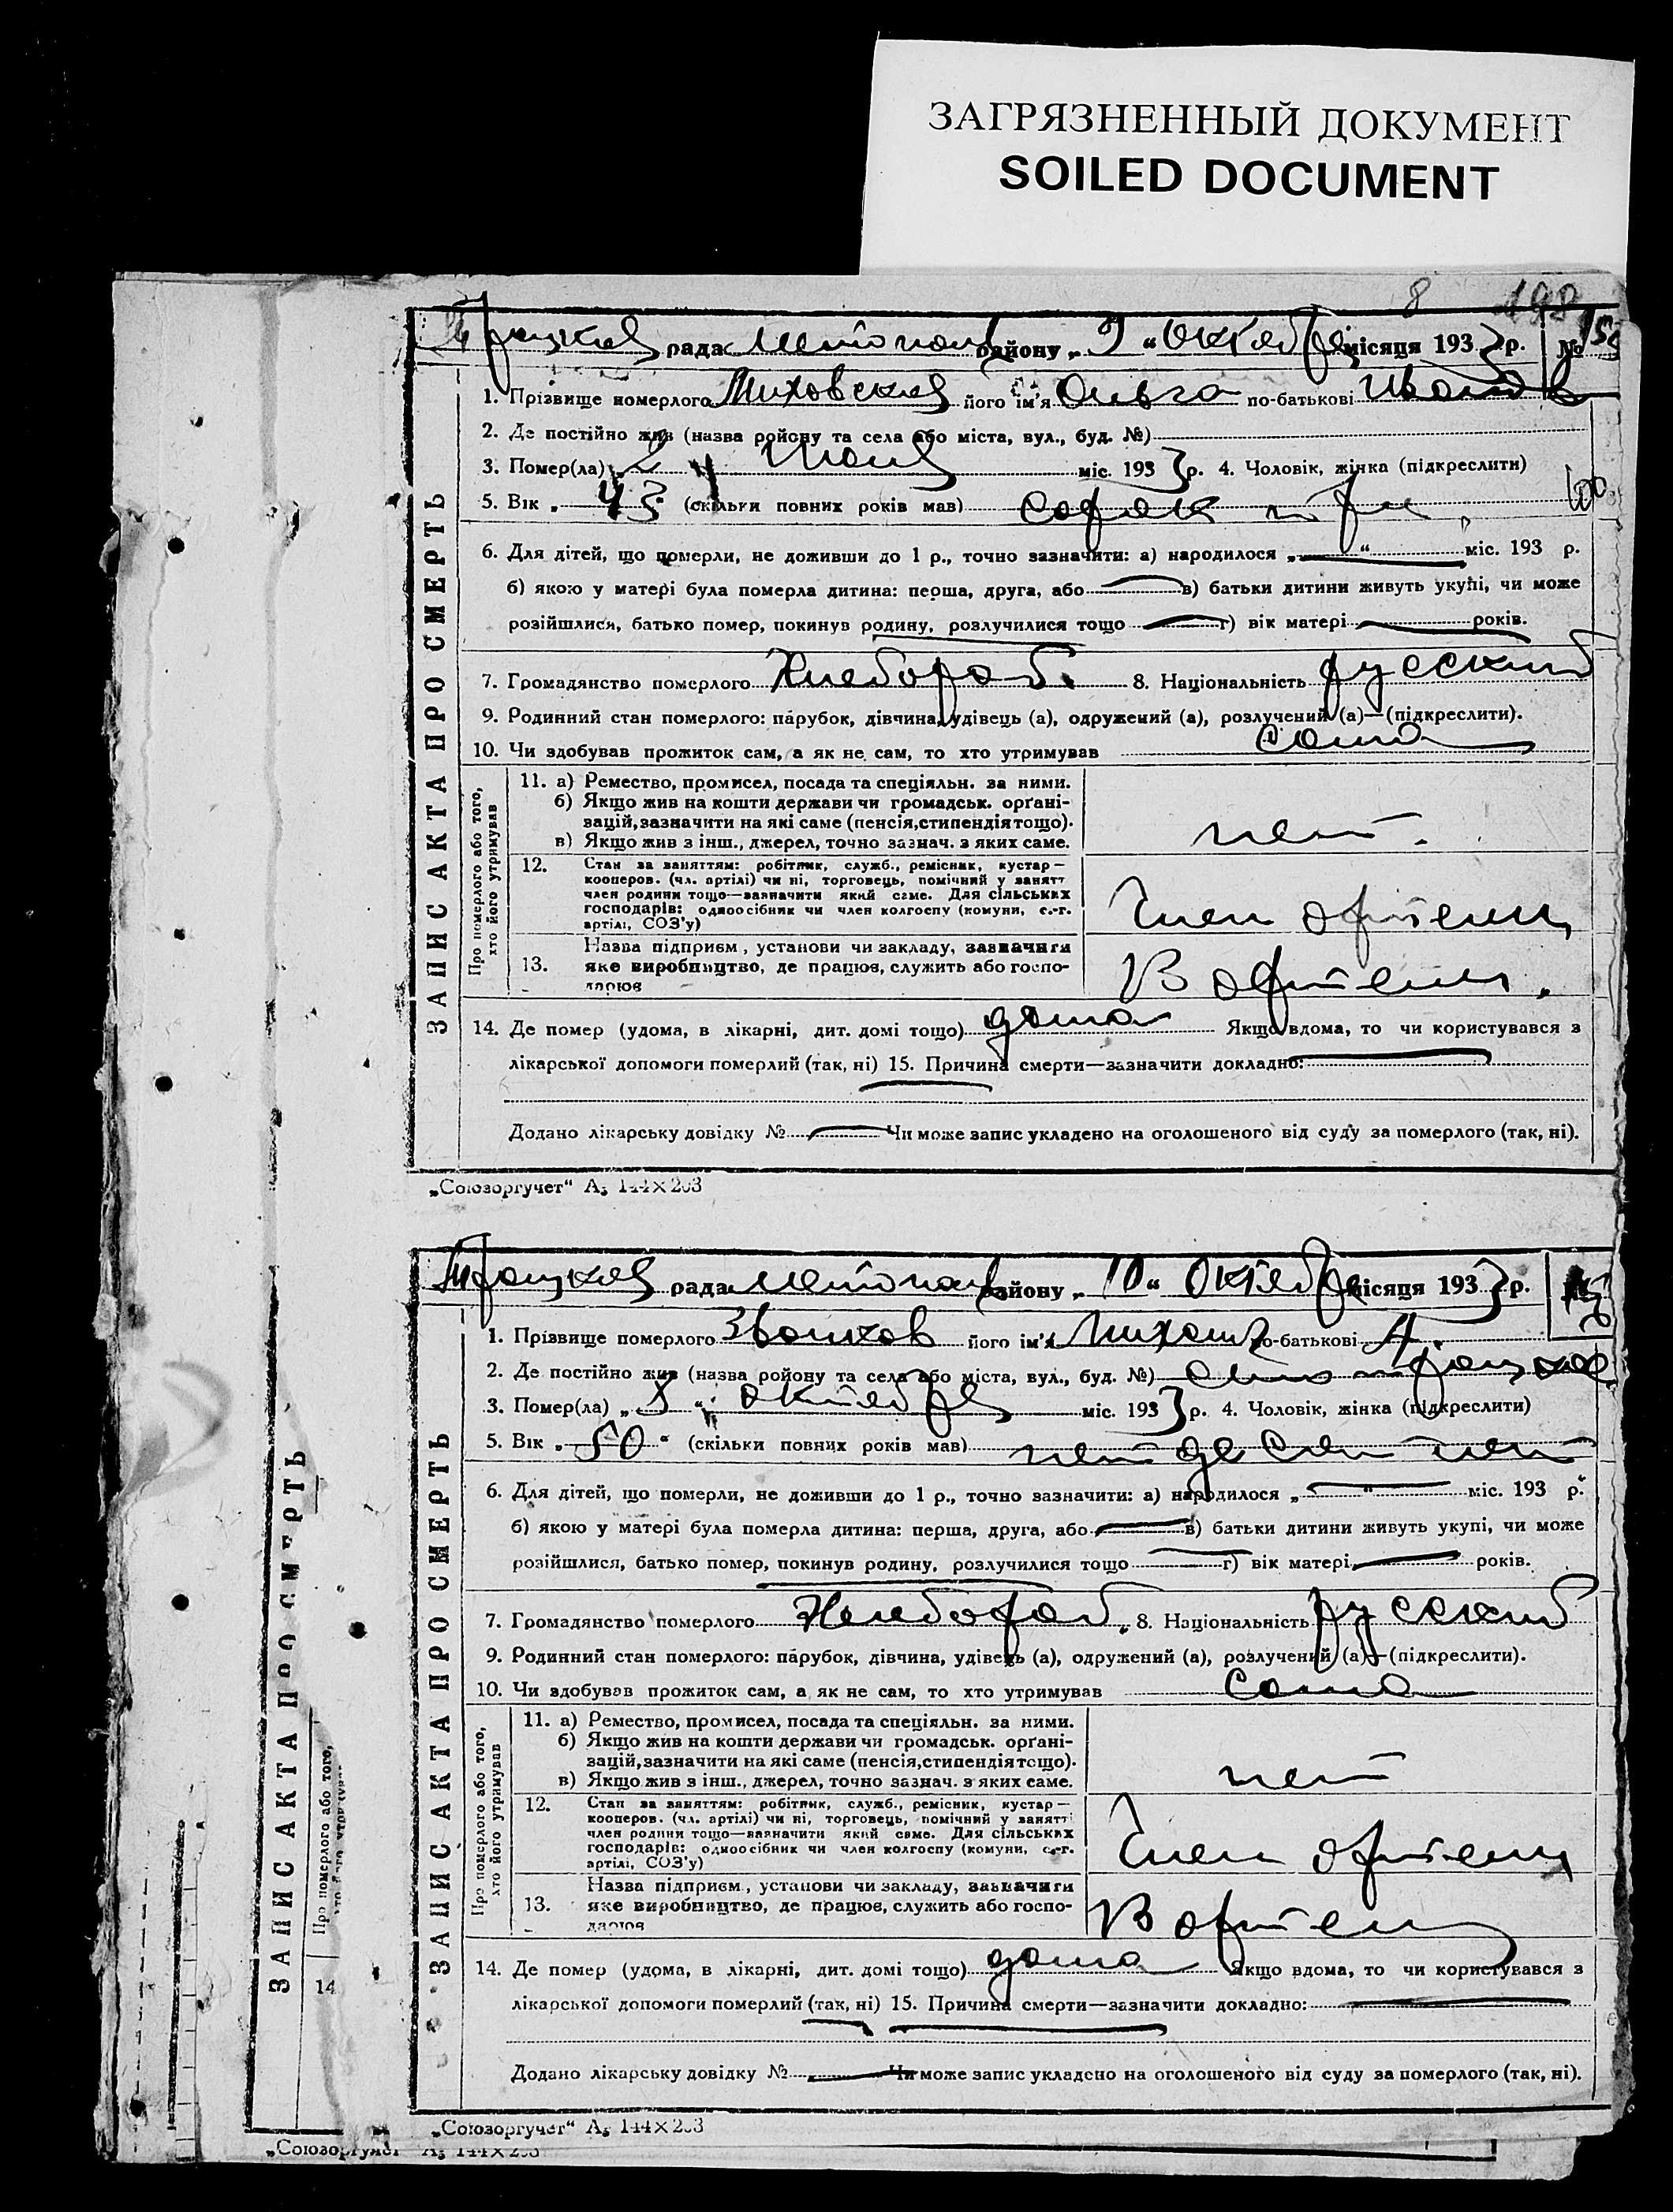 ЗАГРЯЗНЕННЫЙ ДОКУМЕНТ
SOILED DOCUMENT
8 198
рада району „9“ Октября місяця 1933 р. №
1. Прізвище померлого його ім'я Ольга по-батькові
2. Де постійно жив (назва ройону та села або міста, вул., буд. №)
3. Помер(ла) „2“ міс. 1933 р. 4. Чоловік, жінка (підкреслити)
5. Вік „43“ (скільки повних років мав) сорок три
6. Для дітей, що померли, не доживши до 1 р., точно зазначити: а) народилося „ “ міс. 193 р.
б) якою у матері була померла дитина: перша, друга, або в) батьки дитини живуть укупі, чи може
розійшлися, батько помер, покинув родину, розлучилися тощо г) вік матері років.
7. Громадянство померлого Хлебороб. 8. Національність русский
9. Родинний стан померлого: парубок, дівчина, удівець (а), одружений (а), розлучений (а)—(підкреслити).
10. Чи здобував прожиток сам, а як не сам, то хто утримував сама
Про померлого або того, хто його утримував
11. а) Ремество, промисел, посада та спеціяльн. за ними.
б) Якщо жив на кошти держави чи громадськ. орґані-
зацій, зазначити на які саме (пенсія, стипендія тощо).
в) Якщо жив з інш., джерел, точно зазнач. з яких саме.
нет.
12. Стан за заняттям: робітник, служб., ремісник, кустар —
кооперов. (чл. артілі) чи ні, торговець, помічний у занятт
член родини тощо—зазначити який саме. Для сільських
господарів: одноосібник чи член колгоспу (комуни, с.-г.
артілі, СОЗ'у)
Член артели
13. Назва підприєм., установи чи закладу, зазначити
яке виробництво, де працює, служить або госпо-
дарює
В артели.
14. Де помер (удома, в лікарні, дит. домі тощо) дома Якщо вдома, то чи користувався з
лікарської допомоги померлий (так, ні) 15. Причина смерти—зазначити докладно:
Додано лікарську довідку № Чи може запис укладено на оголошеного від суду за померлого (так, ні).
ЗАПИС АКТА ПРО СМЕРТЬ
„Союзоргучет“ А5 144×203
рада району „10“ Октября місяця 1933 р.
1. Прізвище померлого його ім'я Михаил по-батькові А.
2. Де постійно жив (назва ройону та села або міста, вул., буд. №)
3. Помер(ла) „3“ октября міс. 1933 р. 4. Чоловік, жінка (підкреслити)
5. Вік „50“ (скільки повних років мав) пятдесят лет
6. Для дітей, що померли, не доживши до 1 р., точно зазначити: а) народилося „ “ міс. 193 р.
б) якою у матері була померла дитина: перша, друга, або в) батьки дитини живуть укупі, чи може
розійшлися, батько помер, покинув родину, розлучилися тощо г) вік матері років.
7. Громадянство померлого Хлебороб 8. Національність русский
9. Родинний стан померлого: парубок, дівчина, удівець (а), одружений (а), розлучений (а)—(підкреслити).
10. Чи здобував прожиток сам, а як не сам, то хто утримував сама
Про померлого або того, хто його утримував
11. а) Ремество, промисел, посада та спеціяльн. за ними.
б) Якщо жив на кошти держави чи громадськ. орґані-
зацій, зазначити на які саме (пенсія, стипендія тощо).
в) Якщо жив з інш., джерел, точно зазнач. з яких саме.
нет
12. Стан за заняттям: робітник, служб., ремісник, кустар —
кооперов. (чл. артілі) чи ні, торговець, помічний у занятті
член родини тощо—зазначити який саме. Для сільських
господарів: одноосібник чи член колгоспу (комуни, с.-г.
артілі, СОЗ'у)
Член артели
13. Назва підприєм., установи чи закладу, зазначити
яке виробництво, де працює, служить або госпо-
дарює
В артели
14. Де помер (удома, в лікарні, дит. домі тощо) дома Якщо вдома, то чи користувався з
лікарської допомоги померлий (так, ні) 15. Причина смерти—зазначити докладно:
Додано лікарську довідку № Чи може запис укладено на оголошеного від суду за померлого (так, ні).
ЗАПИС АКТА ПРО СМЕРТЬ
„Союзоргучет“ А5 144×203
ЗАПИС АКТА ПРО СМЕРТЬ
Про померлого або того,
14
„Союзоргучет“ А5 144×203